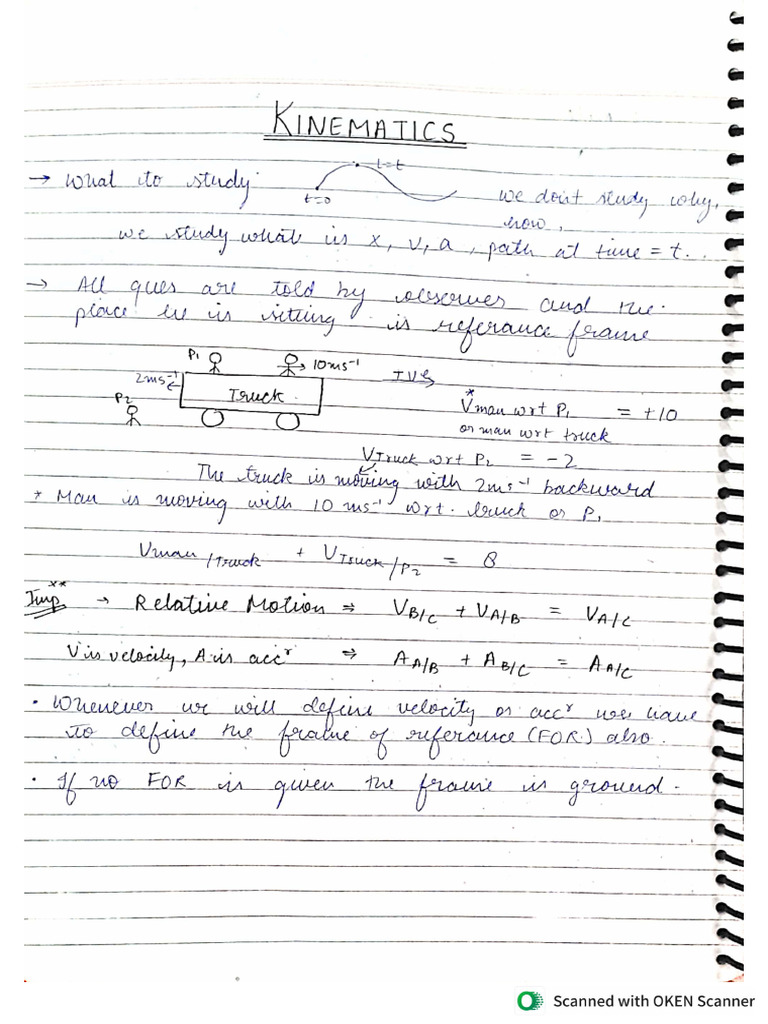 KINEMATICS
→ What to study t=0 t=t we don't study why,
how,
we study what is x, v, a, path at time = t..
→ All ques are told by observer and the
place he is sitting is referance frame
P1 10 ms⁻¹ +ve
2ms⁻¹ Truck
P2
*Vman wrt P1 = +10
or man wrt truck
VTruck wrt P2 = -2
The truck is moving with 2ms⁻¹ backward
* Man is moving with 10 ms⁻¹ wrt. truck or P1
Vman/Truck + VTruck/P2 = 8
Imp** → Relative Motion ⇒ VB/C + VA/B = VA/C
V is velocity, A is accʳ ⇒ AA/B + AB/C = AA/C
• Whenever we will define velocity or accʳ we have
to define the frame of referance (FOR) also.
• If no FOR is given the frame is ground.
Scanned with OKEN Scanner